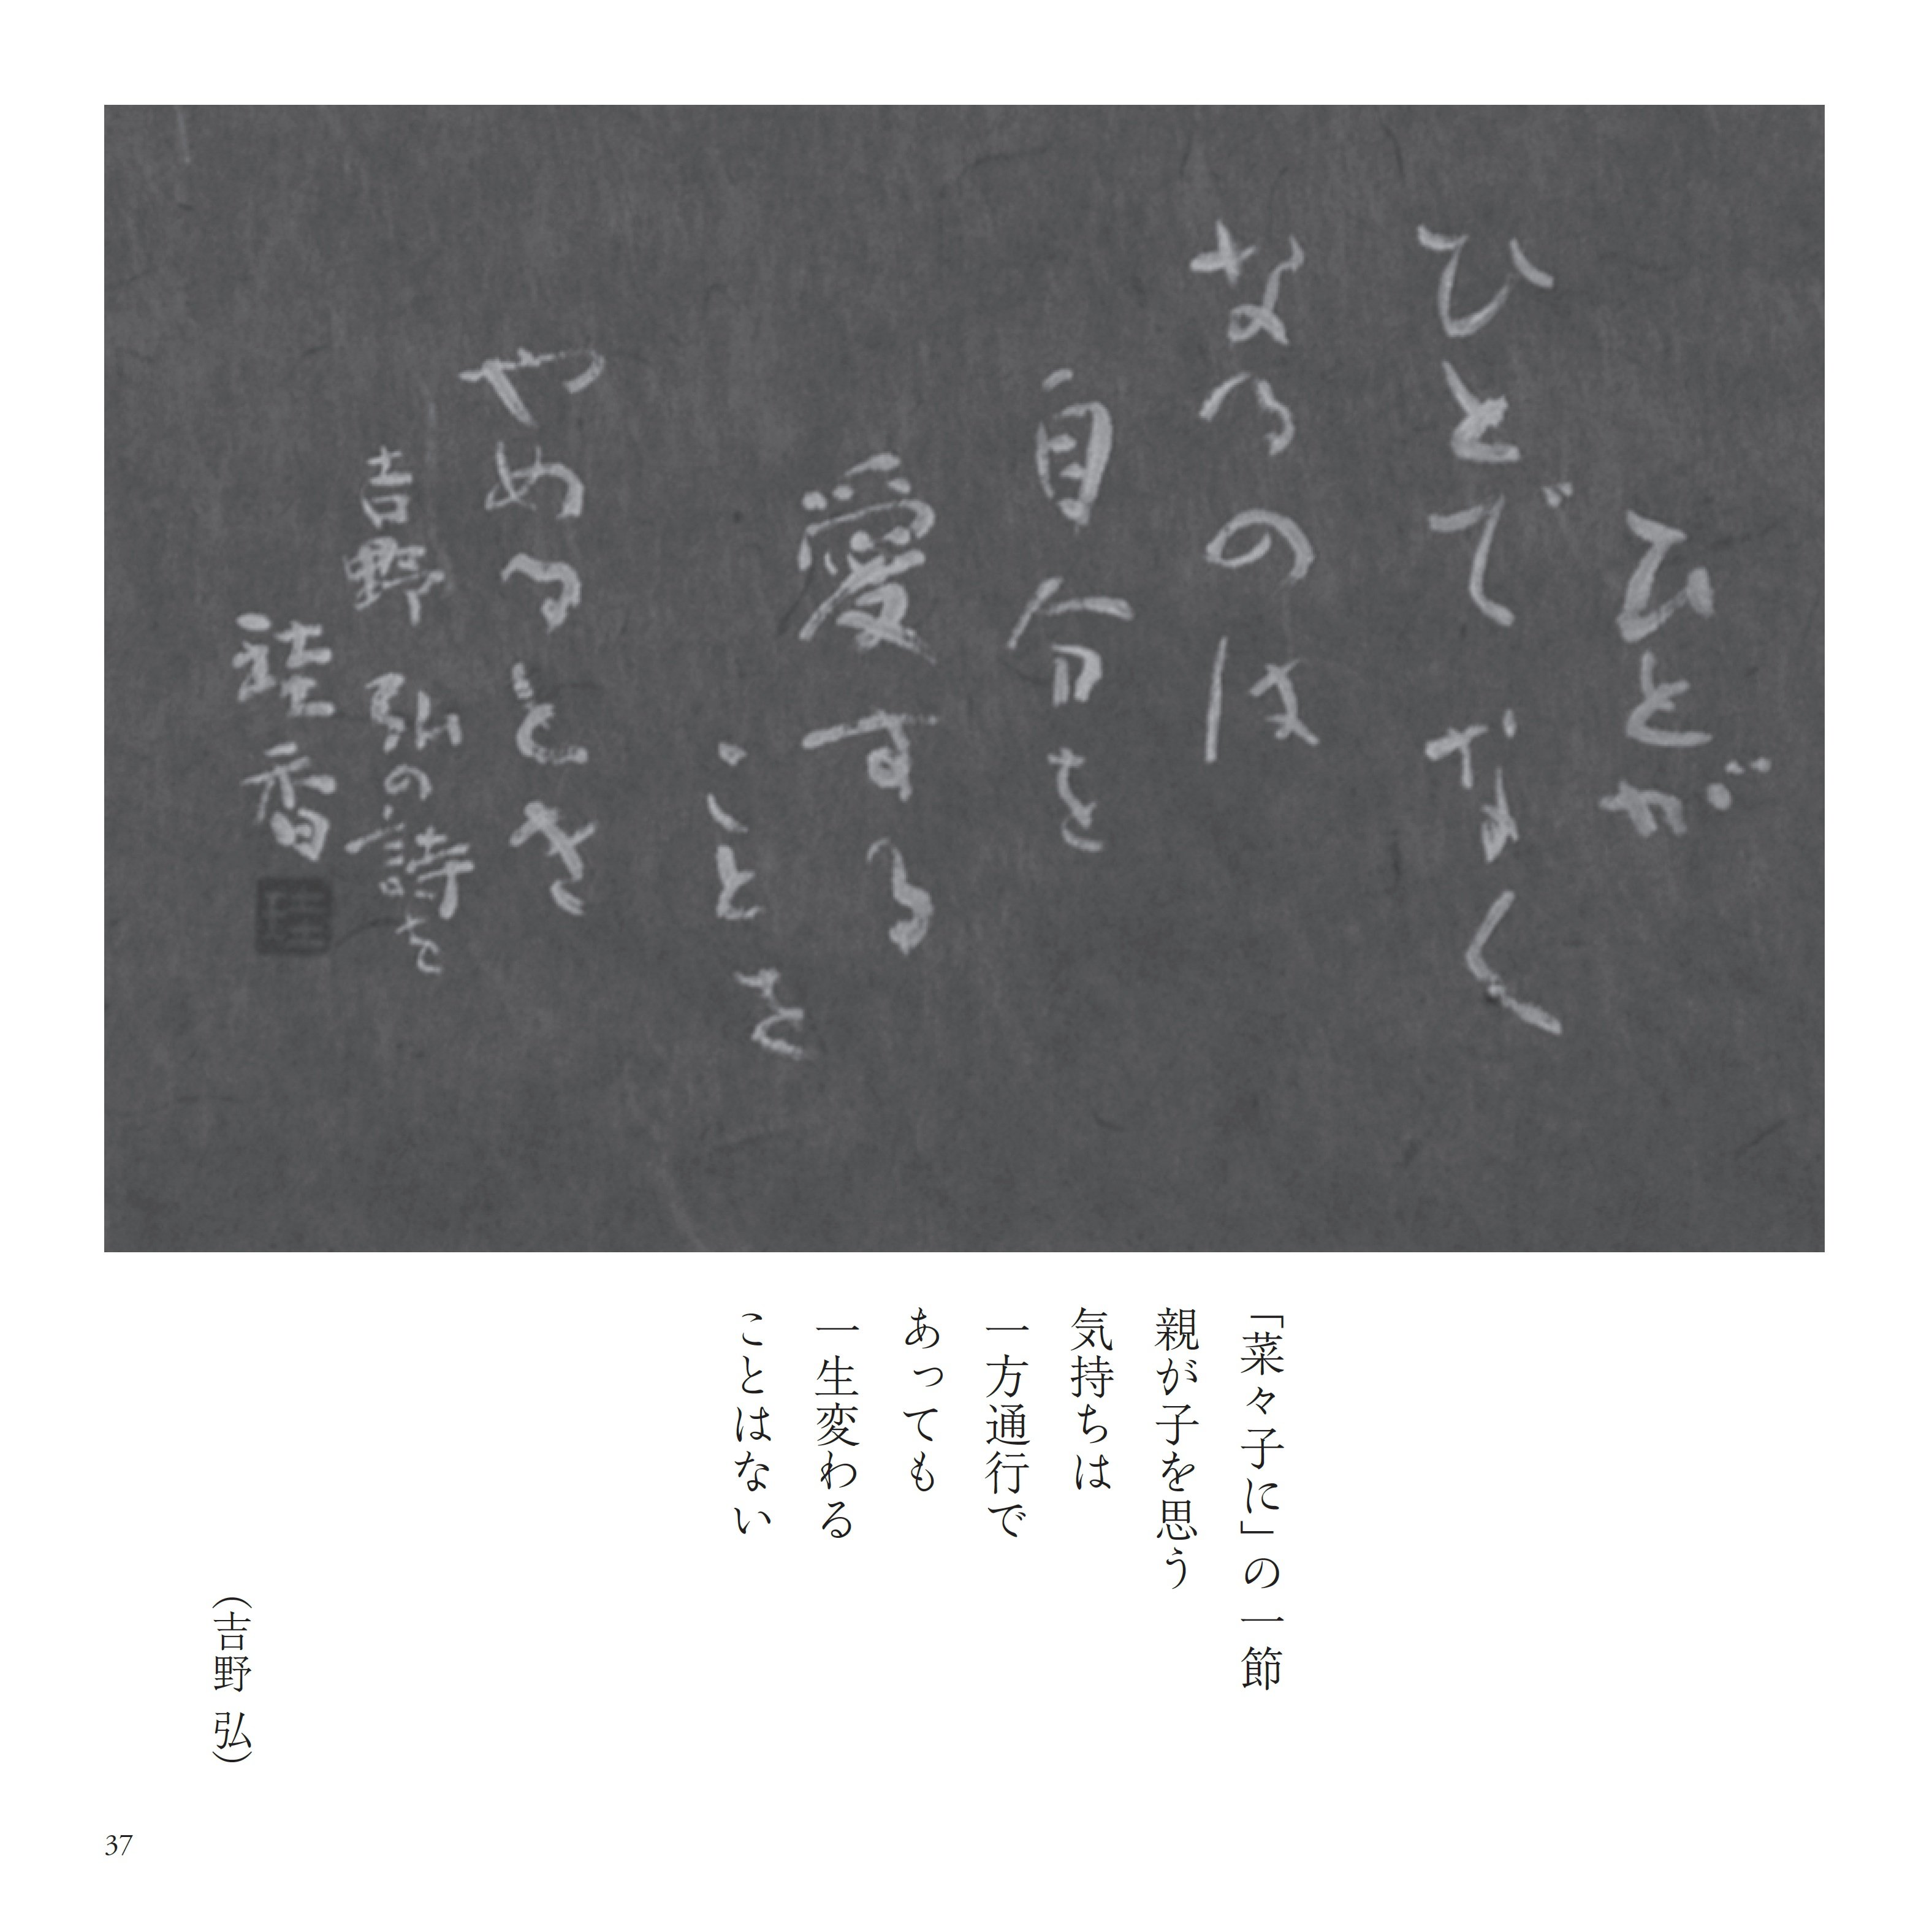 ひとが
ひとでなく
なるのは
自分を
愛する
ことを
やめるとき
吉野 弘の詩を
香
「菜々子に」の一節
親が子を思う
気持ちは
一方通行で
あっても
一生変わる
ことはない
（吉野 弘）
37